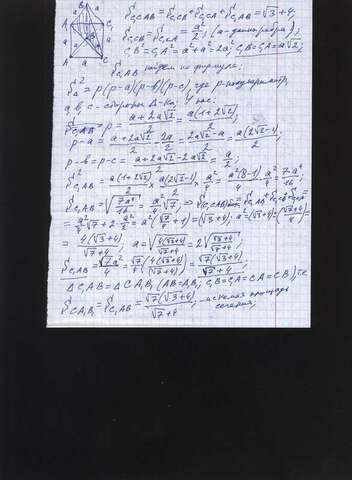 S_{C₁CAB} = S_{C₁CA} + S_{C₁CB} + S_{C₁AB} = √3+4;
S_{C₁CB} = S_{C₁CA} = a²/2; (a - длина ребра);
C₁B² = C₁A² = a²+a² = 2a²; C₁B = C₁A = a√2;
S_{C₁AB} найдем по формуле:
S_Δ² = p(p-a)(p-b)(p-c), где p-полупериметр,
a, b, c - стороны Δ-ка; У нас:
S_{C₁AB} → p = (a+2a√2)/2 = a(1+2√2)/2;
p-a = (a+2a√2)/2 - 2a/2 = (2a√2-a)/2 = a(2√2-1)/2;
p-b = p-c = (a+2a√2-2a√2)/2 = a/2;
S²_{C₁AB} = a(1+2√2)/2 × a(2√2-1)/2 × a²/4 = a²(8-1)/4 · a²/4 = 7a⁴/16
S_{C₁AB} = √(7a⁴/16) = a²/4 √7
= a²/4 √7 + 2·a²/2 = a²(√7/4+1) = (√3+4);
= 4(√3+4)/(√7+4); a = √(4(√3+4)/(√7+4)) = 2√((√3+4)/(√7+4));
S_{C₁AB} = √7a²/4 = √7/4 (4(√3+4)/(√7+4)) = √7(√3+4)/(√7+4);
ΔC₁AB = ΔCA₁B₁ (AB=A₁B₁; C₁B=C₁A=CA₁=CB₁); т.е
S_{CA₁B₁} = S_{C₁AB} = √7(√3+4)/(√7+4) - искомая площадь
сечения;